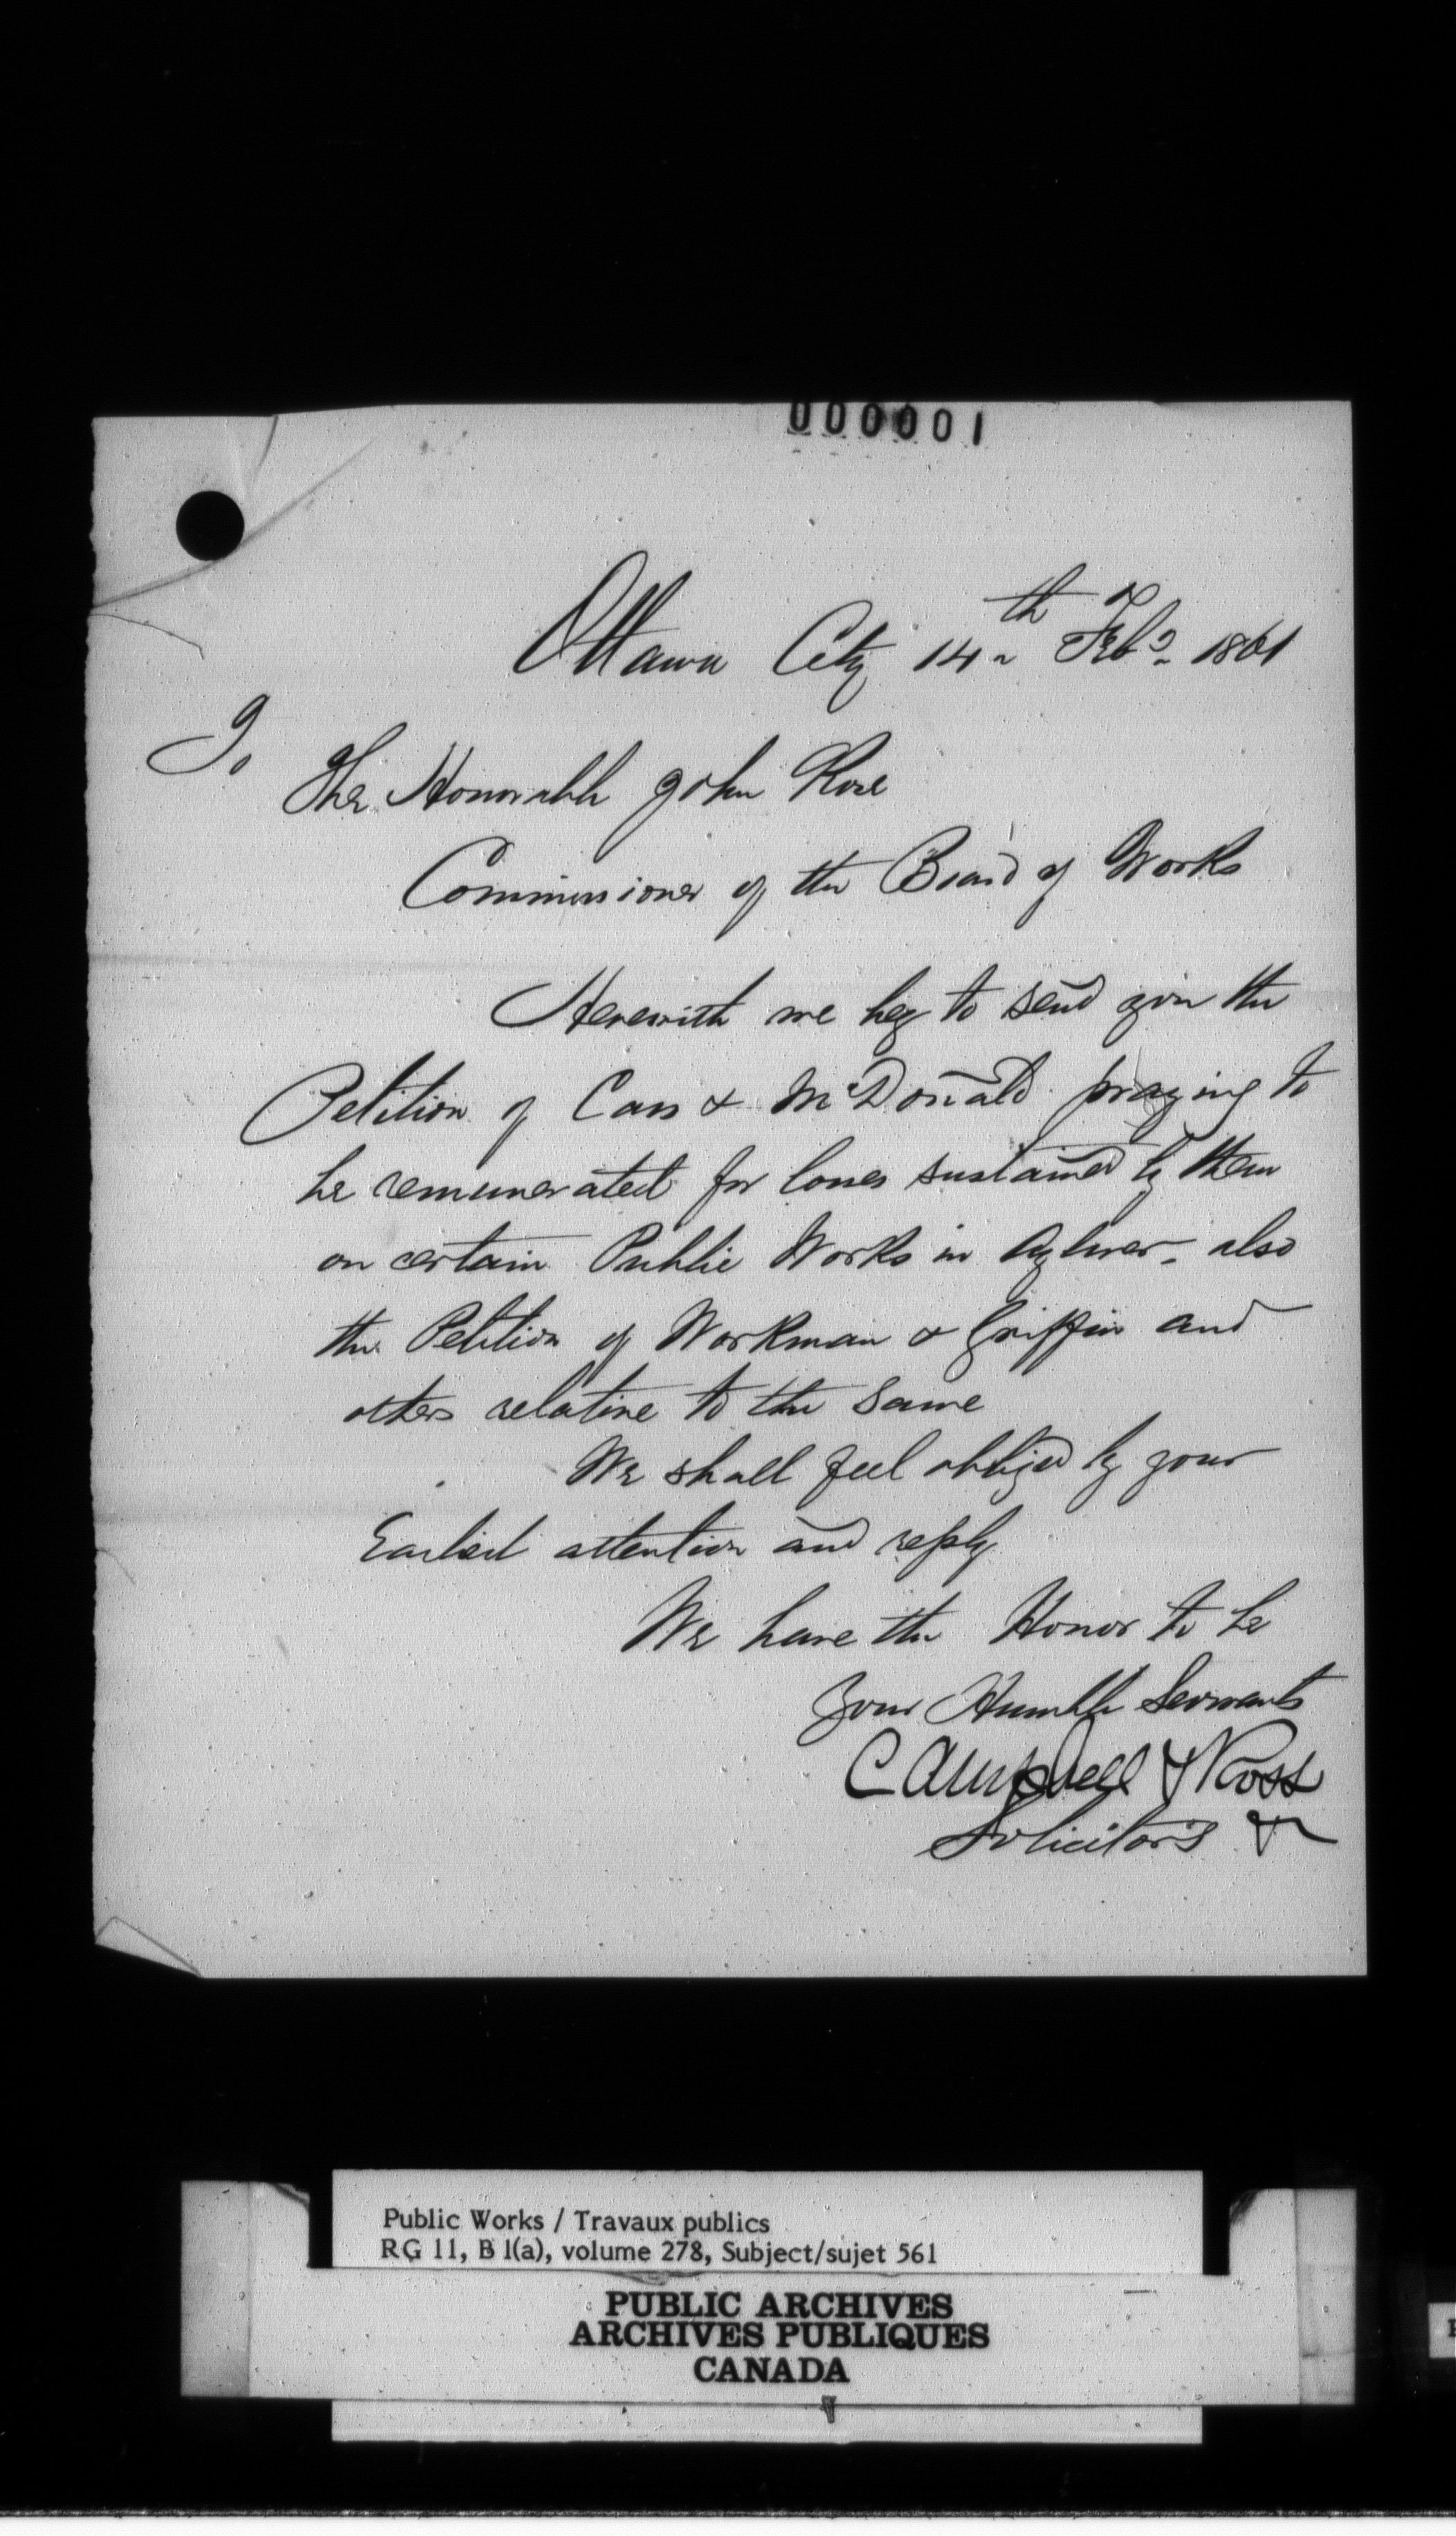 000001
Ottawa City 14th Feby 1861
To
The Honorable John Rose
Commissioner of the Board of Works
Herewith we beg to send you the
Petition of Cass & McDonald praying to
be remunerated for losses sustained by them
on certain Public Works in Aylmer - also
the Petition of Workman & Griffin and
others relative to the same
We shall feel obliged by your
Earliest attention and reply
We have the Honor to be
Your Humble Servants
Campbell & Ross
Solicitors &
Public Works / Travaux publics
RG 11, B 1(a), volume 278, Subject/sujet 561
PUBLIC ARCHIVES
ARCHIVES PUBLIQUES
CANADA